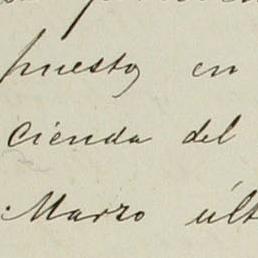 puesto en
cienda del
Marzo últ